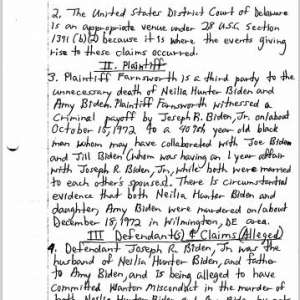 2. The United States District Court of Delaware
is an appropriate venue under 28 U.S.C. section
1391 (b)(2) because it is where the events giving
rise to these claims occurred.
II. Plaintiff
3. Plaintiff Farnsworth is a third party to the
unnecessary death of Neilia Hunter Biden and
Amy Biden. Plaintiff Farnsworth witnessed a
Criminal payoff by Joseph R. Biden, Jr. on/about
October 15, 1972 to a 40ish year old black
man whom may have collaborated with Joe Biden
and Jill Biden (whom was having an 1 year affair
with Joseph R. Biden, Jr., while both were married
to each other's spouses). There is circumstantial
evidence that both Neilia Hunter Biden and
daughter, Amy Biden were murdered on/about
December 18, 1972 in Wilmington, DE area.
III Defendant(s) & Claims (Alleged)
4. Defendant Joseph R. Biden, Jr. was the
husband of Neilia Hunter Biden, and father
to Amy Biden, and is being alleged to have
committed Wanton Misconduct in the murder of
both Neilia Hunter Biden and Amy Biden